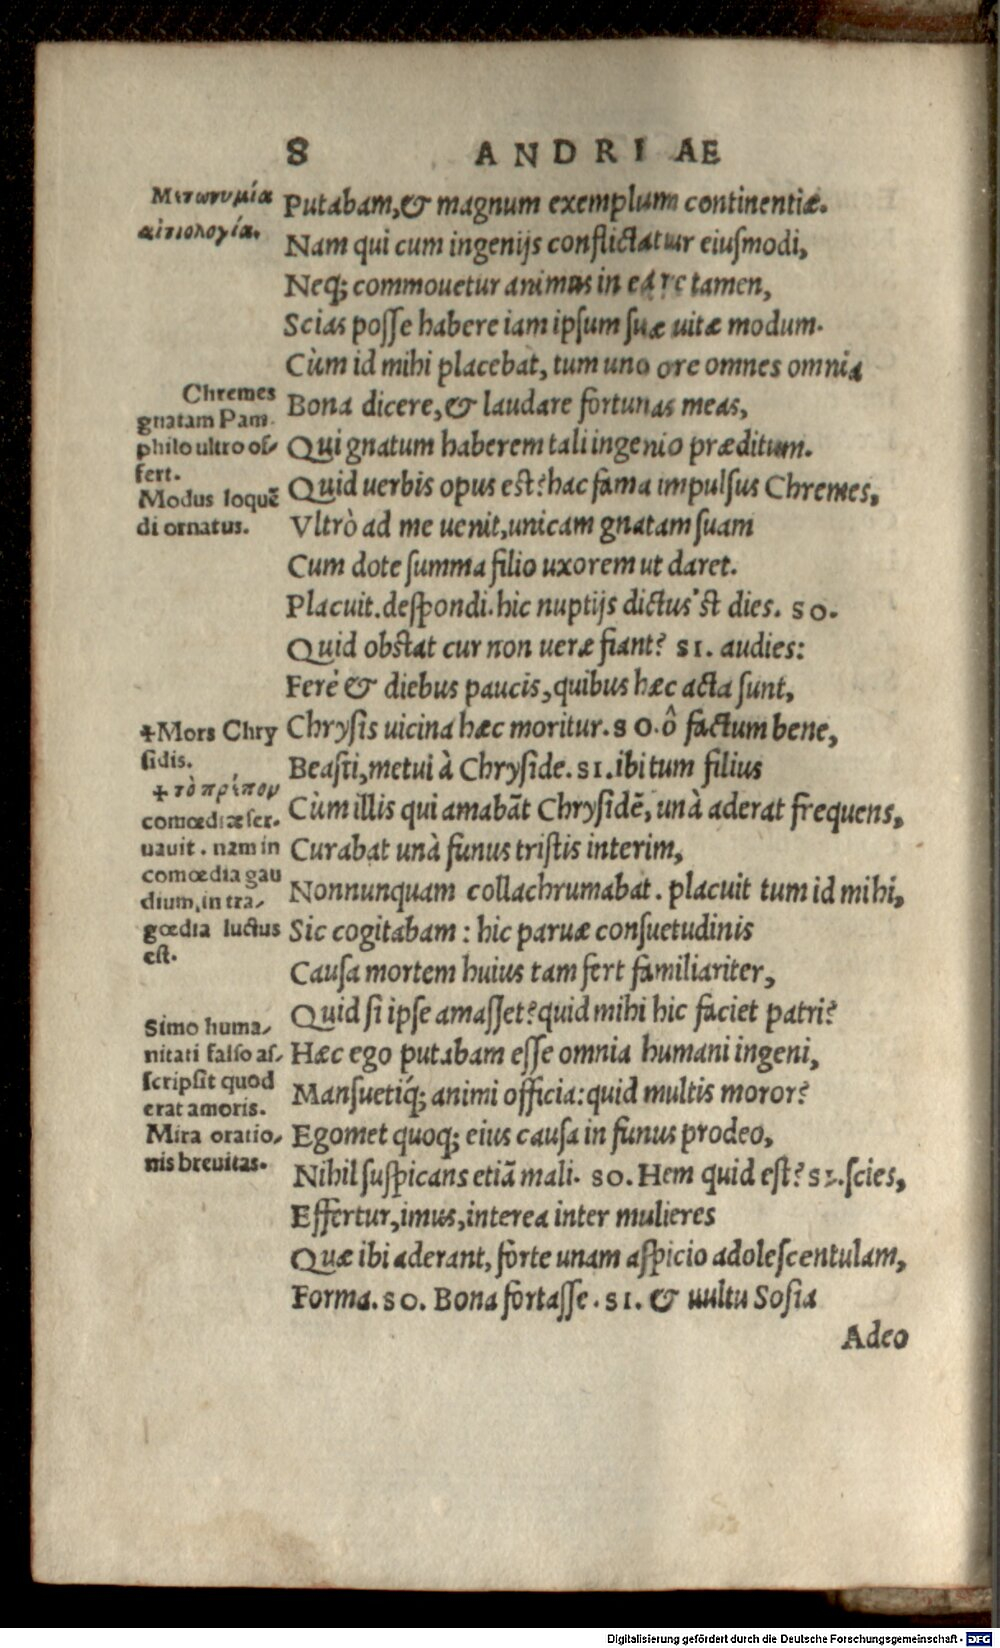 8 ANDRIAE
Μετωνυμία
αἰτιολογία.
Putabam, & magnum exemplum continentiæ.
Nam qui cum ingenijs conflictatur eiuſmodi,
Neq; commouetur animus in ea re tamen,
Scias poſſe habere iam ipſum ſuæ uitæ modum.
Cùm id mihi placebat, tum uno ore omnes omnia
Chremes
gnatam Pam-
philo ultro of-
fert.
Modus loquē
di ornatus.
Bona dicere, & laudare fortunas meas,
Qui gnatum haberem tali ingenio præditum.
Quid uerbis opus eſt? hac fama impulſus Chremes,
Vltrò ad me uenit, unicam gnatam ſuam
Cum dote ſumma filio uxorem ut daret.
Placuit. deſpondi. hic nuptijs dictus'ſt dies. SO.
Quid obſtat cur non ueræ fiant? SI. audies:
Ferè & diebus paucis, quibus hæc acta ſunt,
+Mors Chry
ſidis.
+ τὸ πρέπον
comœdiæ ſer-
uauit. nam in
comœdia gau
dium, in tra-
gœdia luctus
eſt.
Chryſis uicina hæc moritur. SO. ô factum bene,
Beaſti, metui à Chryſide. SI. ibi tum filius
Cùm illis qui amabāt Chryſidē, unà aderat frequens,
Curabat unà funus triſtis interim,
Nonnunquam collachrumabat. placuit tum id mihi,
Sic cogitabam: hic paruæ conſuetudinis
Cauſa mortem huius tam fert familiariter,
Quid ſi ipſe amaſſet? quid mihi hic faciet patri?
Simo huma-
nitati falſo aſ-
ſcripſit quod
erat amoris.
Mira oratio-
nis breuitas.
Hæc ego putabam eſſe omnia humani ingeni,
Manſuetiq́; animi officia: quid multis moror?
Egomet quoq; eius cauſa in funus prodeo,
Nihil ſuſpicans etiā mali. SO. Hem quid eſt? SI. ſcies,
Effertur, imus, interea inter mulieres
Quæ ibi aderant, forte unam aſpicio adoleſcentulam,
Forma. SO. Bona fortaſſe. SI. & uultu Soſia
Adeo
Digitalisierung gefördert durch die Deutsche Forschungsgemeinschaft - DFG